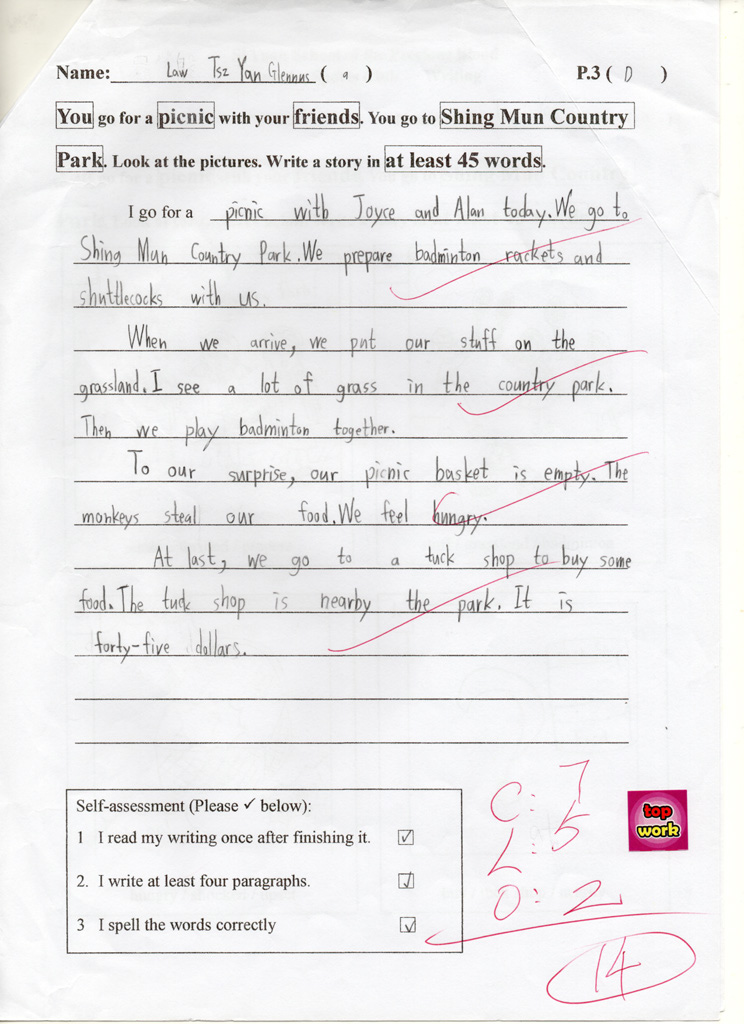 Name: Law Tsz Yan Glennus ( 9 ) P.3 ( D )
You go for a picnic with your friends. You go to Shing Mun Country
Park. Look at the pictures. Write a story in at least 45 words.
I go for a picnic with Joyce and Alan today. We go to
Shing Mun Country Park. We prepare badminton rackets and
shuttlecocks with us.
When we arrive, we put our stuff on the
grassland. I see a lot of grass in the country park.
Then we play badminton together.
To our surprise, our picnic basket is empty. The
monkeys steal our food. We feel hungry.
At last, we go to a tuck shop to buy some
food. The tuck shop is nearby the park. It is
forty-five dollars.
Self-assessment (Please ✓ below):
1 I read my writing once after finishing it. ✓
2. I write at least four paragraphs. ✓
3 I spell the words correctly ✓
C: 7
L: 5
O: 2
14
top
work